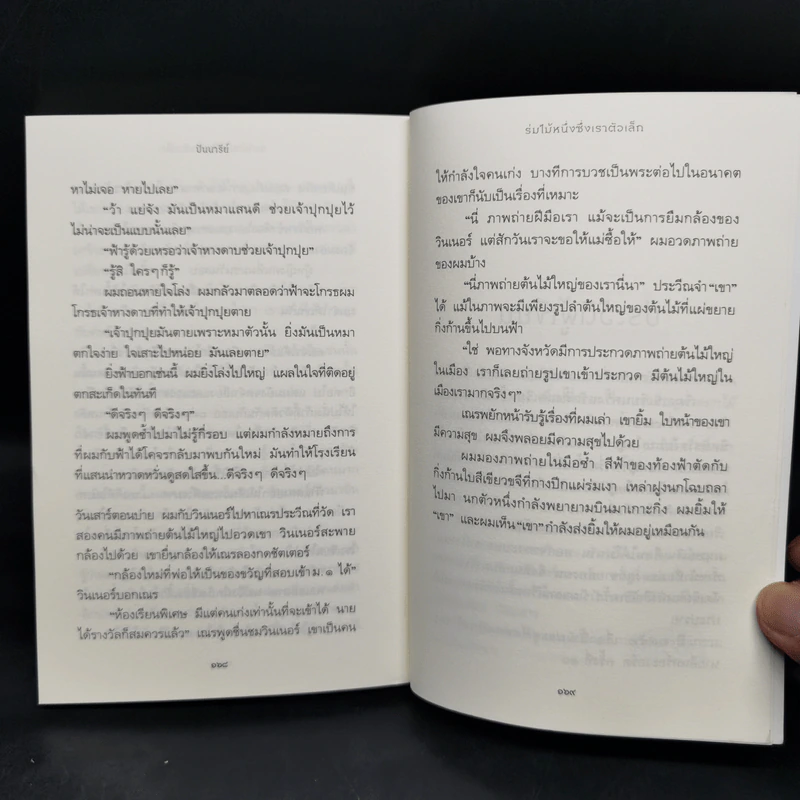 ปันนารีย์
หาไม่เจอ หายไปเลย”
“ว้า แย่จัง มันเป็นหมาแสนดี ช่วยเจ้าปุกปุยไว้
ไม่น่าจะเป็นแบบนั้นเลย”
“ฟ้ารู้ด้วยเหรอว่าเจ้าหางดาบช่วยเจ้าปุกปุย”
“รู้สิ ใครๆ ก็รู้”
ผมถอนหายใจโล่ง ผมกลัวมาตลอดว่าฟ้าจะโกรธผม
โกรธเจ้าหางดาบที่ทำให้เจ้าปุกปุยตาย
“เจ้าปุกปุยมันตายเพราะหมาตัวนั้น ยิ่งมันเป็นหมา
ตกใจง่าย ใจเสาะไปหน่อย มันเลยตาย”
ยิ่งฟ้าบอกเช่นนี้ ผมยิ่งโล่งไปใหญ่ แผลในใจที่ติดอยู่
ตกสะเก็ดในทันที
“ดีจริงๆ ดีจริงๆ”
ผมพูดซ้ำไปมาไม่รู้กี่รอบ แต่ผมกำลังหมายถึงการ
ที่ผมกับฟ้าได้โคจรกลับมาพบกันใหม่ มันทำให้โรงเรียน
ที่แสนน่าหวาดหวั่นดูสดใสขึ้น...ดีจริงๆ ดีจริงๆ
วันเสาร์ตอนบ่าย ผมกับวินเนอร์ไปหาเณรประวีณที่วัด เรา
สองคนมีภาพถ่ายต้นไม้ใหญ่ไปอวดเขา วินเนอร์สะพาย
กล้องไปด้วย เขายื่นกล้องให้เณรลองกดชัตเตอร์
“กล้องใหม่ที่พ่อให้เป็นของขวัญที่สอบเข้า ม. ๑ ได้”
วินเนอร์บอกเณร
“ห้องเรียนพิเศษ มีแต่คนเก่งเท่านั้นที่จะเข้าได้ นาย
ได้รางวัลก็สมควรแล้ว” เณรพูดชื่นชมวินเนอร์ เขาเป็นคน
๑๖๘
ร่มไม้หนึ่งซึ่งเราตัวเล็ก
ให้กำลังใจคนเก่ง บางทีการบวชเป็นพระต่อไปในอนาคต
ของเขาก็นับเป็นเรื่องที่เหมาะ
“นี่ ภาพถ่ายฝีมือเรา แม้จะเป็นการยืมกล้องของ
วินเนอร์ แต่สักวันเราจะขอให้แม่ซื้อให้” ผมอวดภาพถ่าย
ของผมบ้าง
“นี่ภาพถ่ายต้นไม้ใหญ่ของเรานี่นา” ประวีณจำ “เขา”
ได้ แม้ในภาพจะมีเพียงรูปลำต้นใหญ่ของต้นไม้ที่แผ่ขยาย
กิ่งก้านขึ้นไปบนฟ้า
“ใช่ พอทางจังหวัดมีการประกวดภาพถ่ายต้นไม้ใหญ่
ในเมือง เราก็เลยถ่ายรูปเขาเข้าประกวด มีต้นไม้ใหญ่ใน
เมืองเรามากจริงๆ”
เณรพยักหน้ารับรู้เรื่องที่ผมเล่า เขายิ้ม ใบหน้าของเขา
มีความสุข ผมจึงพลอยมีความสุขไปด้วย
ผมมองภาพถ่ายในมือซ้ำ สีฟ้าของท้องฟ้าตัดกับ
กิ่งก้านใบสีเขียวขจีที่กางปีกแผ่ร่มเงา เหล่าฝูงนกโฉบถลา
ไปมา นกตัวหนึ่งกำลังพยายามบินมาเกาะกิ่ง ผมยิ้มให้
“เขา” และผมเห็น “เขา” กำลังส่งยิ้มให้ผมอยู่เหมือนกัน
๑๖๙